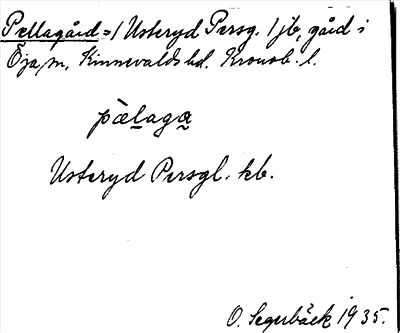 Pellagård = / Usteryd Persg. / jb, gård i
Öja sn, Kinnevalds hd. Kronob. l.
pæ̀laga
Usteryd Persgl. kb.
O. Segerbäck 1935.